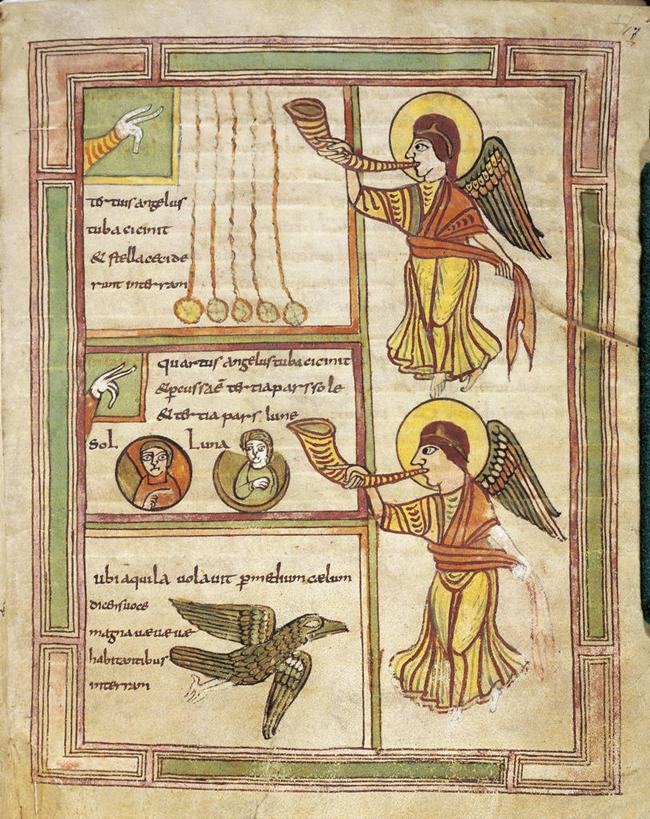 tertius angelus
tuba cicinit
& stella ceride
runt interram
quartus angelus tuba cicinit
& percussa ē tertia pars sole
& tertia pars lune
sol Luna
ubi aquila volavit p methum cælum
dicens voce
magna væ væ væ
habitantibus
interram